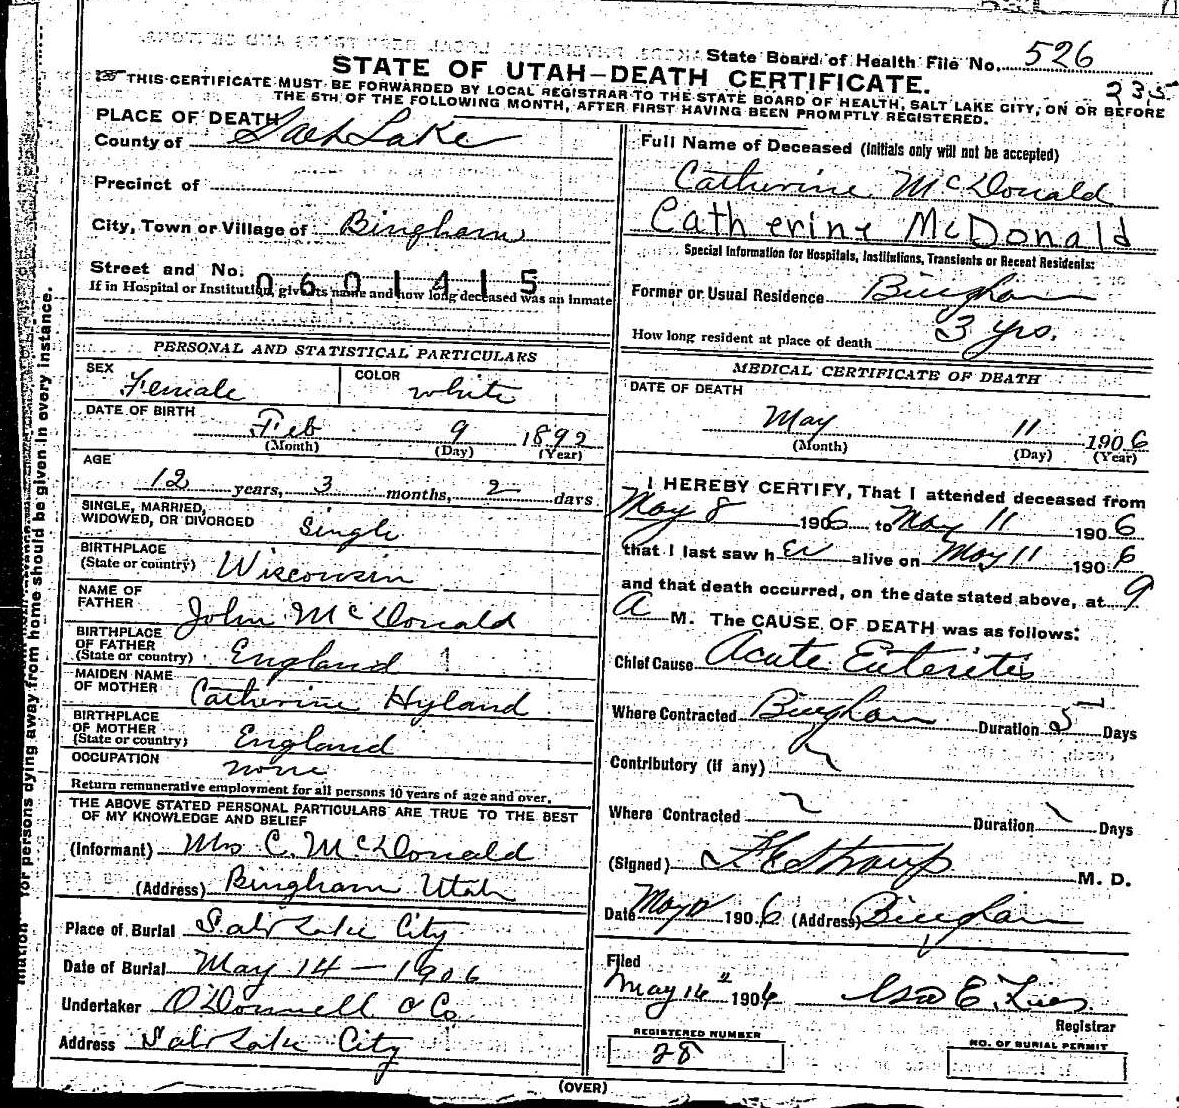 State Board of Health File No. 526
235
STATE OF UTAH—DEATH CERTIFICATE.
THIS CERTIFICATE MUST BE FORWARDED BY LOCAL REGISTRAR TO THE STATE BOARD OF HEALTH, SALT LAKE CITY, ON OR BEFORE
THE 5TH OF THE FOLLOWING MONTH, AFTER FIRST HAVING BEEN PROMPTLY REGISTERED.
PLACE OF DEATH
County of Salt Lake
Precinct of
City, Town or Village of Bingham
Street and No.
0601415
If in Hospital or Institution, give its name and how long deceased was an Inmate
PERSONAL AND STATISTICAL PARTICULARS
SEX Female COLOR white
DATE OF BIRTH
Feb 9 1892
(Month) (Day) (Year)
AGE
12 years, 3 months, 2 days
SINGLE, MARRIED,
WIDOWED, OR DIVORCED Single
BIRTHPLACE
(State or country) Wisconsin
NAME OF
FATHER John McDonald
BIRTHPLACE
OF FATHER
(State or country) England
MAIDEN NAME
OF MOTHER Catherine Hyland
BIRTHPLACE
OF MOTHER
(State or country) England
OCCUPATION none
Return remunerative employment for all persons 10 years of age and over.
THE ABOVE STATED PERSONAL PARTICULARS ARE TRUE TO THE BEST
OF MY KNOWLEDGE AND BELIEF
(Informant) Mrs C. McDonald
(Address) Bingham Utah
Place of Burial Salt Lake City
Date of Burial May 14 - 1906
Undertaker O'Donnell & Co.
Address Salt Lake City
Full Name of Deceased (Initials only will not be accepted)
Catherine McDonald
Catherine McDonald
Special Information for Hospitals, Institutions, Transients or Recent Residents:
Former or Usual Residence Bingham
How long resident at place of death 3 yrs.
MEDICAL CERTIFICATE OF DEATH
DATE OF DEATH
May 11 1906
(Month) (Day) (Year)
I HEREBY CERTIFY, That I attended deceased from
May 8 1906 to May 11 1906
that I last saw her alive on May 11 1906
and that death occurred, on the date stated above, at 9
A M. The CAUSE OF DEATH was as follows:
Chief Cause Acute Enteritis
Where Contracted Bingham Duration 5 Days
Contributory (if any)
Where Contracted Duration Days
(Signed) M. D.
Date May 1906 (Address) Bingham
Filed
May 14" 1906
Registrar
REGISTERED NUMBER
28
NO. OF BURIAL PERMIT
(OVER)
for persons dying away from home should be given in every instance.